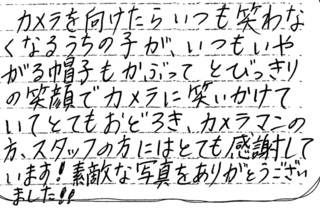 カメラを向けたらいつも笑わな
くなるうちの子が、いつもいや
がる帽子もかぶって とびっきり
の笑顔でカメラに笑いかけて
いてとてもおどろき、カメラマンの
方、スタッフの方にはとても感謝して
います!素敵な写真をありがとうござい
ました!!